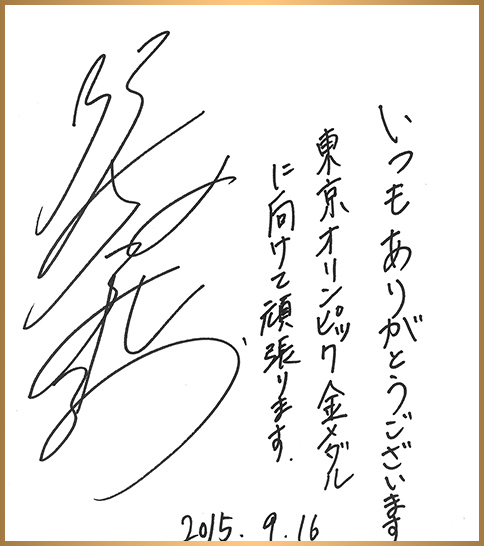 いつもありがとうございます
東京オリンピック金メダル
に向けて頑張ります.
2015. 9. 16